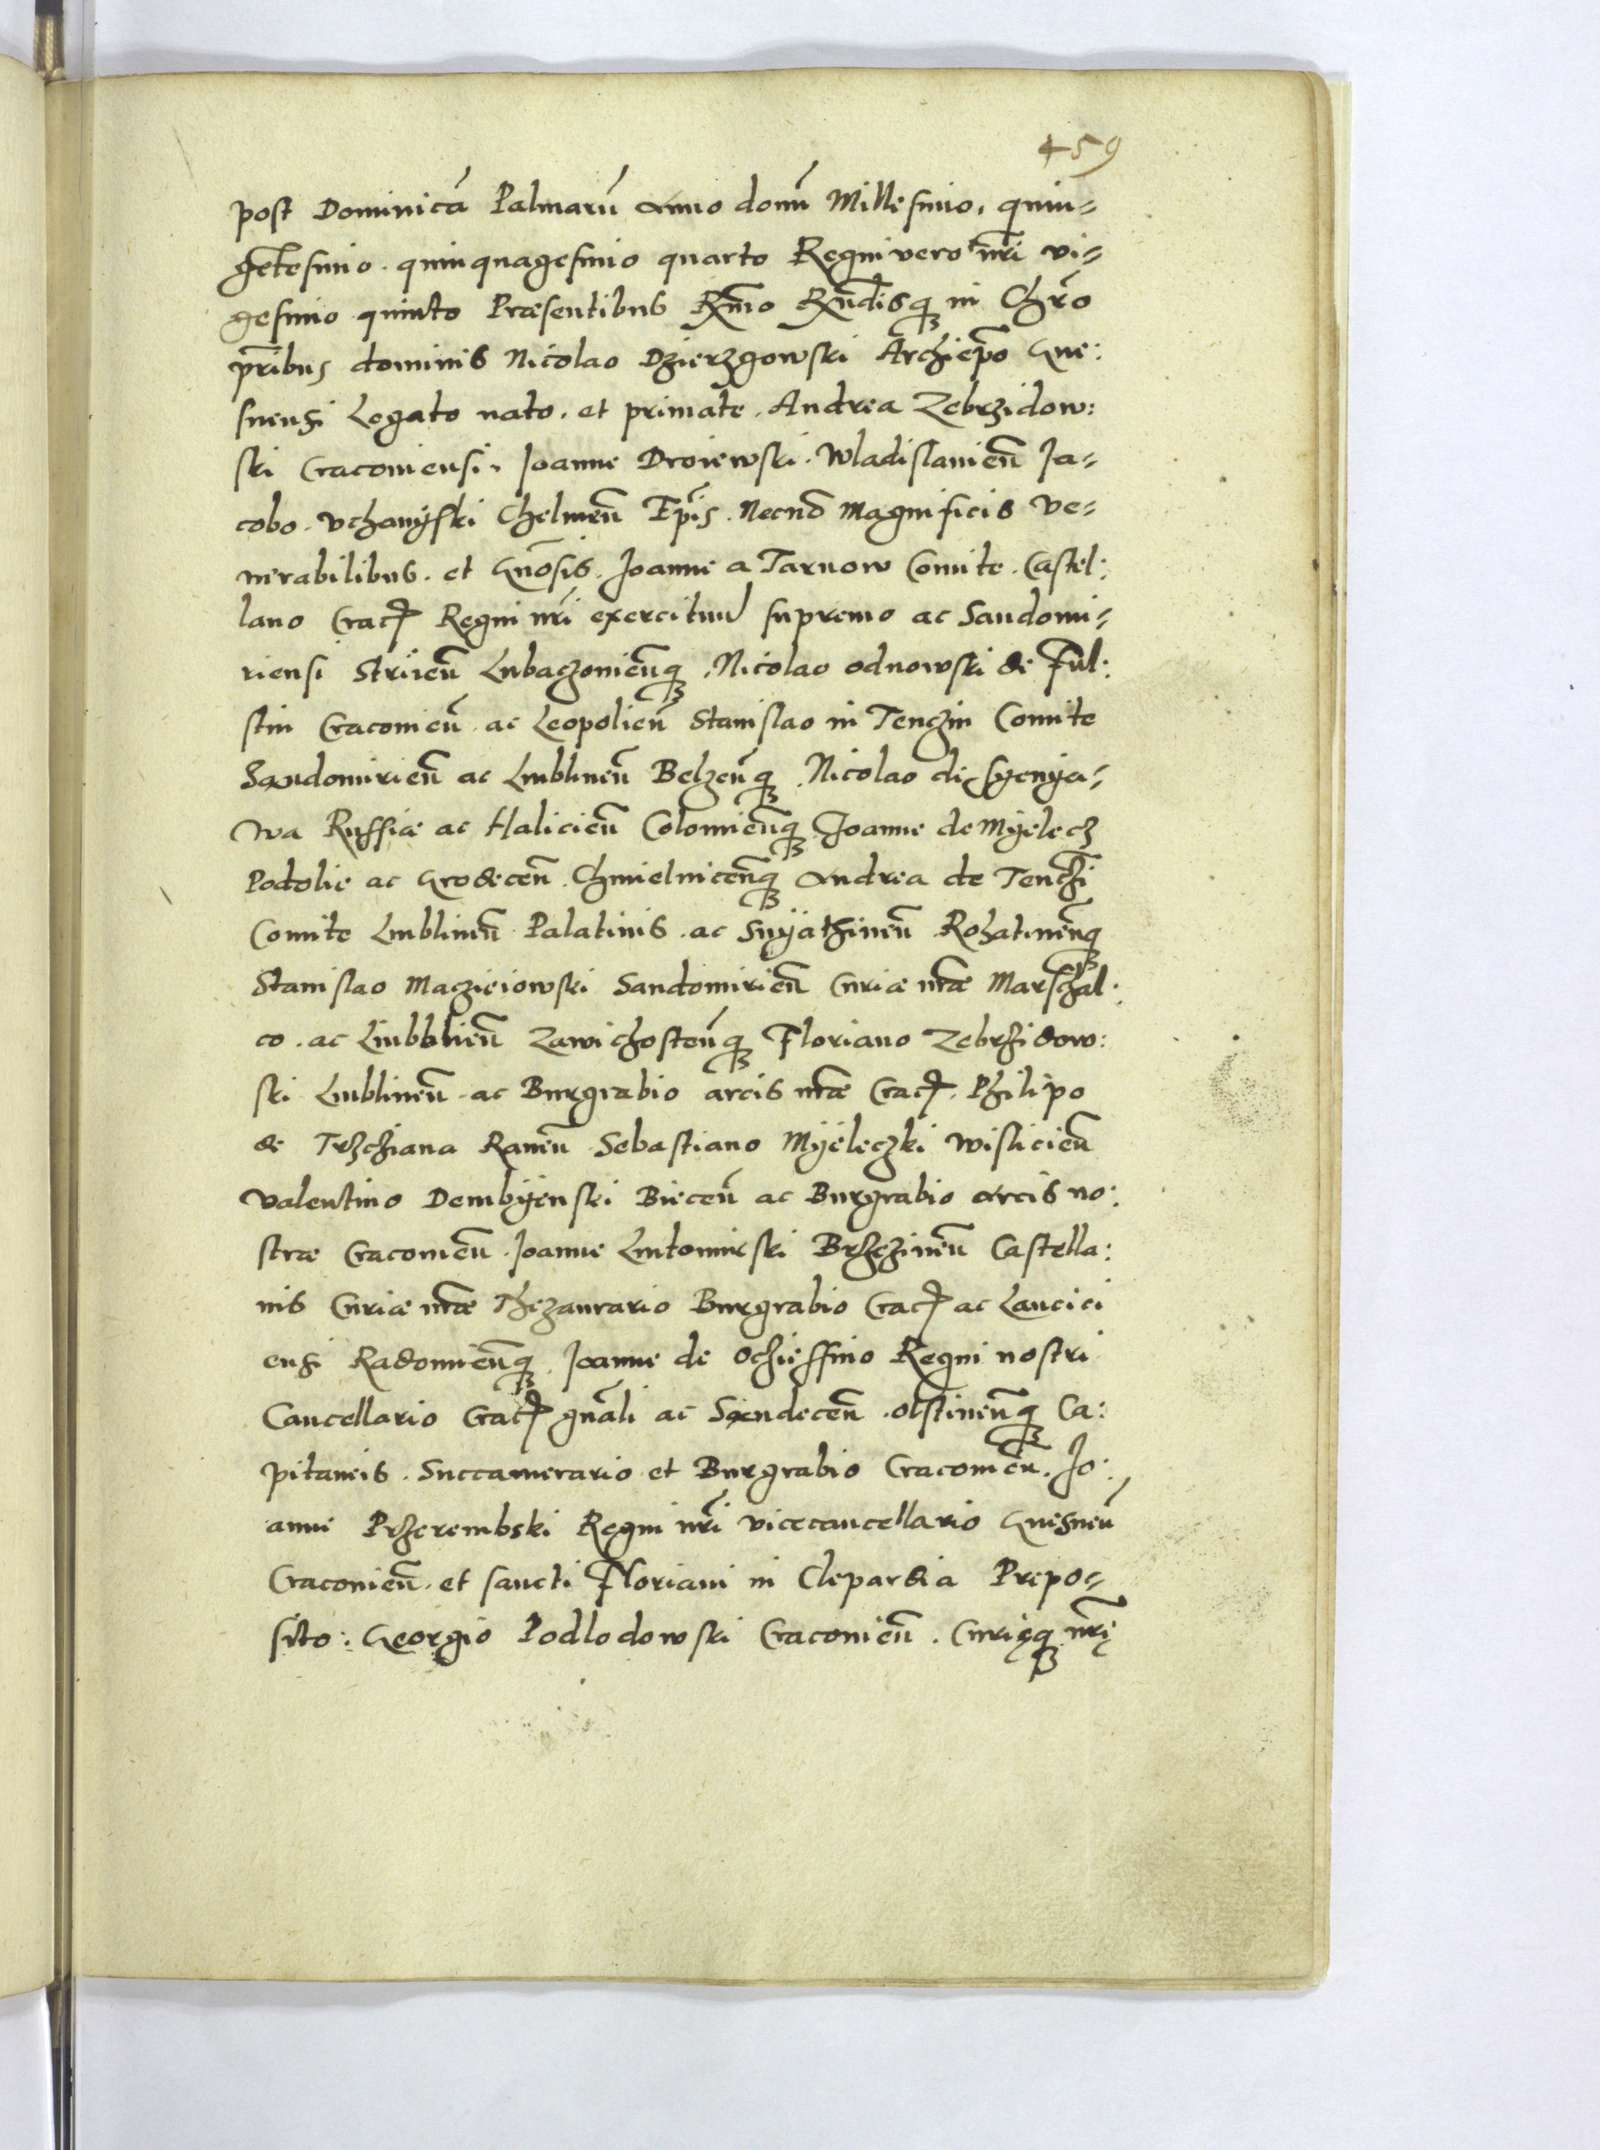 459
post Dominicā Palmarū Anno domī Millesimo, quin-
gētesimo quinquagesimo quarto Regni vero nr̄i vi-
gesimo quinto Præsentibus Rx̄mo Rx̄ndisq3 in Chr̄o
pr̄ibus dominis Nicolao Dzierzgowski Archiep̄o Gne:
snensi Legato nato. et primate. Andrea Zebrzidow:
ski Cracoviensi. Joanne Droiewski. Wladislavień Ja-
cobo. Vchanÿski Chelmeń Ep̄is. Necnō Magnificis Ve-
nerabilibus. et Gn̄osis. Joanne a Tarnow Comite. Castel:
lano Crac̄ Regni nr̄i exercituū supremo ac Sandomi-
riensi Striień Lubaczovieńq3. Nicolao Odnowski de Ful:
stin Cracovień. ac Leopolień Stanislao in Tenczin Comite
Sandomirień ac Lublineń Belzeńq3. Nicolao de Syenya-
wa Russiæ ac Halicień Colomieńq3 Joanne de Mÿelecz
Podolie ac Grodeceń. Chmielniceńq3 Andrea de Tenčzī
Comite Lublineń Palatinis. ac Snÿathineń Rohatineńq3
Stanislao Maczieiowski Sandomirień Curiæ nr̄æ Marschal:
co. ac Liubblień Zawichosteńq3 Floriano Zebrzidow:
ski Lublineń. ac Burgrabio arcis nr̄æ Crac̄. Philipo
de Trzchiana Raveń Sebastiano Mÿeleczki Wislicień
Valentino Dembÿenski Bieceń ac Burgrabio Arcis no:
stræ Cracovień. Joanne Lutomirski Brzezineń Castella:
nis Curiæ nr̄æ Thezaurario Burgrabio Crac̄ ac Lancici
ensi Radomieńq3. Joanne de Ochiessino Regni nostri
Cancellario Crac̄ gn̄ali ac Sandeceń. Olstineńq3 Ca:
pitaneis. Succamerario et Burgrabio Cracovień. Jo:
anne Przerembski Regni nr̄i vicecancellario Gnesneń
Cracovień. et sancti Floriani in Clepardia Prepo-
sito: Georgio Podlodowski Cracovień. Curięq3 nr̄ę